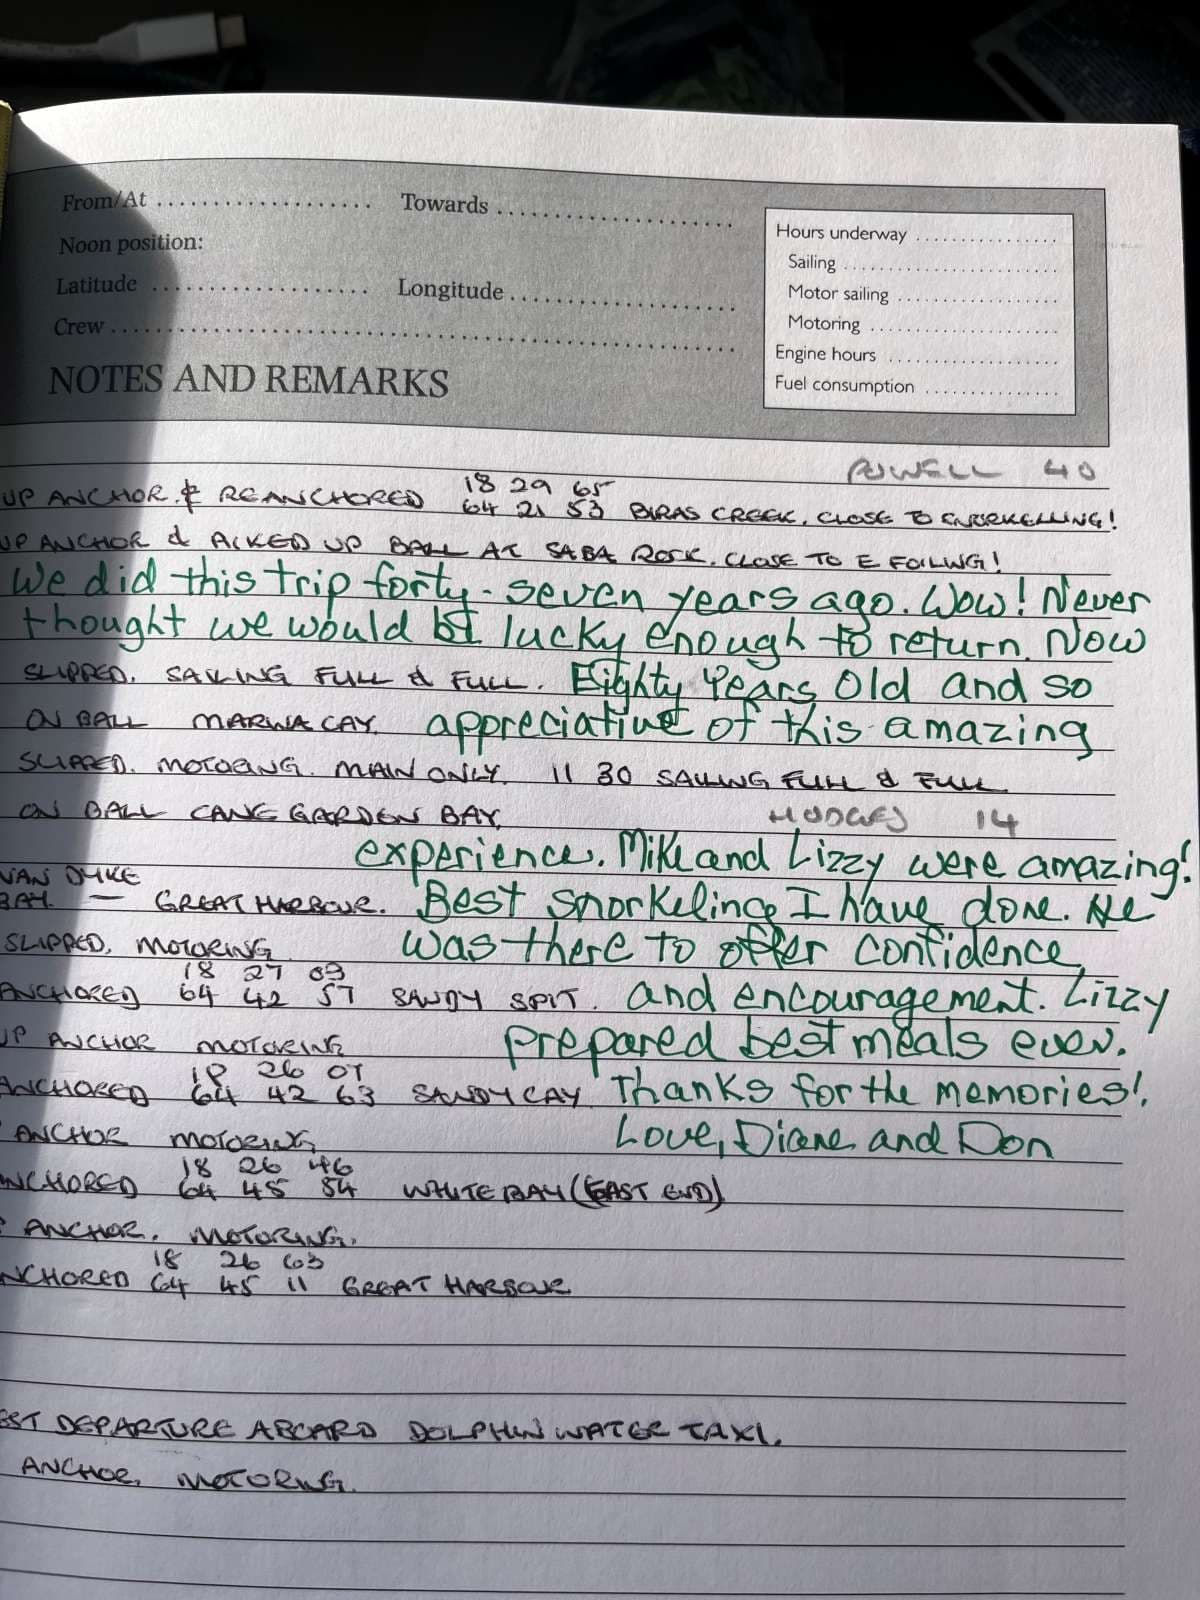 From/At .................... Towards ........................
Hours underway ................
Noon position:
Sailing ........................
Latitude .................... Longitude ........................
Motor sailing ..................
Crew ................................................................
Motoring .....................
Engine hours ..................
NOTES AND REMARKS
Fuel consumption ..............
POWELL 40
18 29 65
UP ANCHOR & REANCHORED 64 21 53 BIRAS CREEK. CLOSE TO SNORKELLING!
UP ANCHOR & PICKED UP BALL AT SABA ROCK. CLOSE TO E FOILING!
We did this trip forty-seven years ago. Wow! Never
thought we would be lucky enough to return. Now
SLIPPED. SAILING FULL & FULL. Eighty Years Old and so
ON BALL MARINA CAY. appreciative of this amazing
SLIPPED. MOTORING. MAIN ONLY. 11 30 SAILING FULL & FULL
ON BALL CANE GARDEN BAY. HODGES 14
experience. Mike and Lizzy were amazing!
VAN DYKE
BAY. — GREAT HARBOUR. Best snorkeling I have done. He
SLIPPED. MOTORING was there to offer confidence
18 27 03
ANCHORED 64 42 57 SANDY SPIT. and encouragement. Lizzy
UP ANCHOR MOTORING prepared best meals ever.
18 26 07
ANCHORED 64 42 63 SANDY CAY. Thanks for the memories!
ANCHOR MOTORING. Love, Diane and Don
18 26 46
NCHORED 64 45 54 WHITE BAY (EAST END)
ANCHOR. MOTORING.
18 26 63
NCHORED 64 45 11 GREAT HARBOUR
EST DEPARTURE ABOARD DOLPHIN WATER TAXI.
ANCHOR. MOTORING.